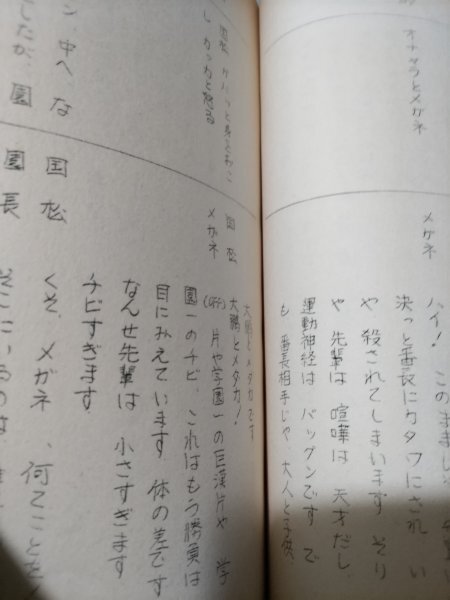 オケラとメガネ
メガネ
ハイ! このままじゃ
決っと番長にカタワにされ、い
や 殺されてしまいます そり
や 先輩は 喧嘩は 天才だし、
運動神経は バツグンです で
も 番長相手じゃ、大人と子供、
大鵬とメダカです
国松
大鵬とメダカ!
メガネ
(OFF) 片や学園一の巨漢片や 学
園一のチビ、これはもう勝負は
目にみえています 体の差です
なんせ先輩は 小さすぎます
チビすぎます
国松 ガバッと身をおこ
し カッカと怒る
国松
くそ、メガネ、何てことを
園長
そこにいるのは
ン、中へ、な
したが、園